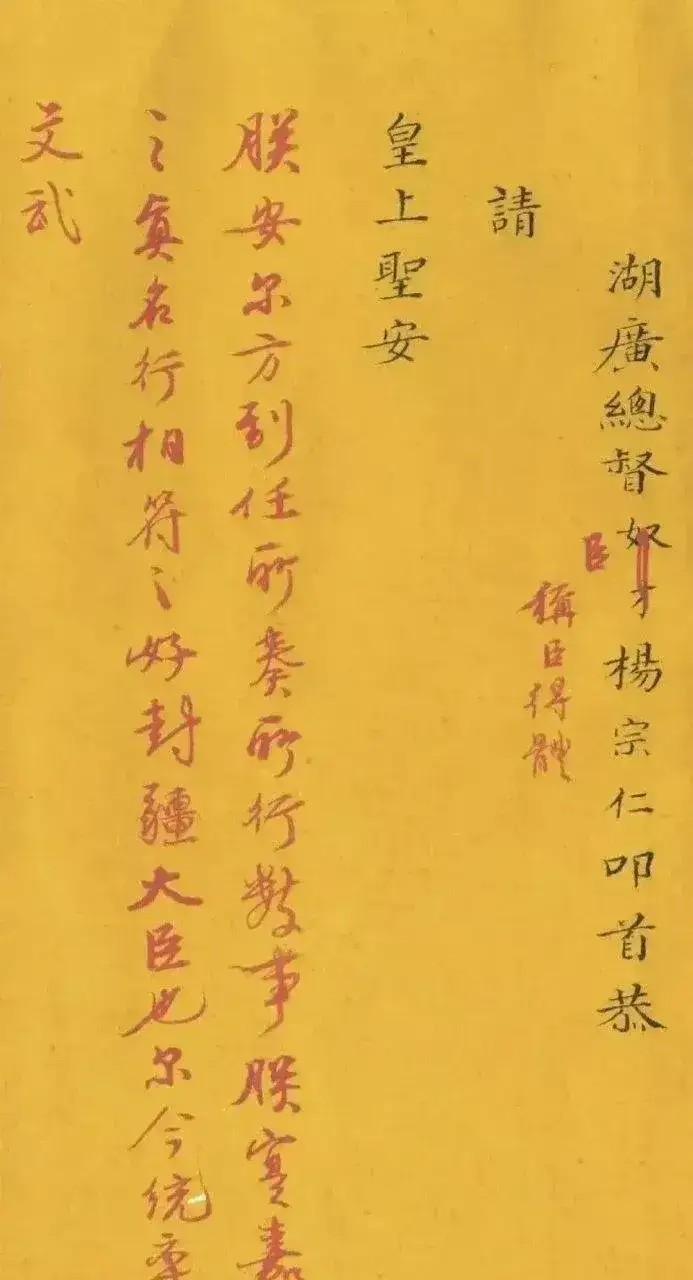 湖廣總督奴才楊宗仁叩首恭
臣
稱臣得體
請
皇上聖安
朕安尔方到任所奏所行數事朕實嘉
之真名行相符之好封疆大臣也尔今统
文武